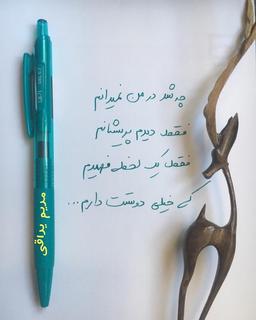 چه شد در من نمیدانم
فقط دیدم پریشانم
فقط یک لحظه فهمیدم
که خیلی دوستت دارم...
مدیم یداقی